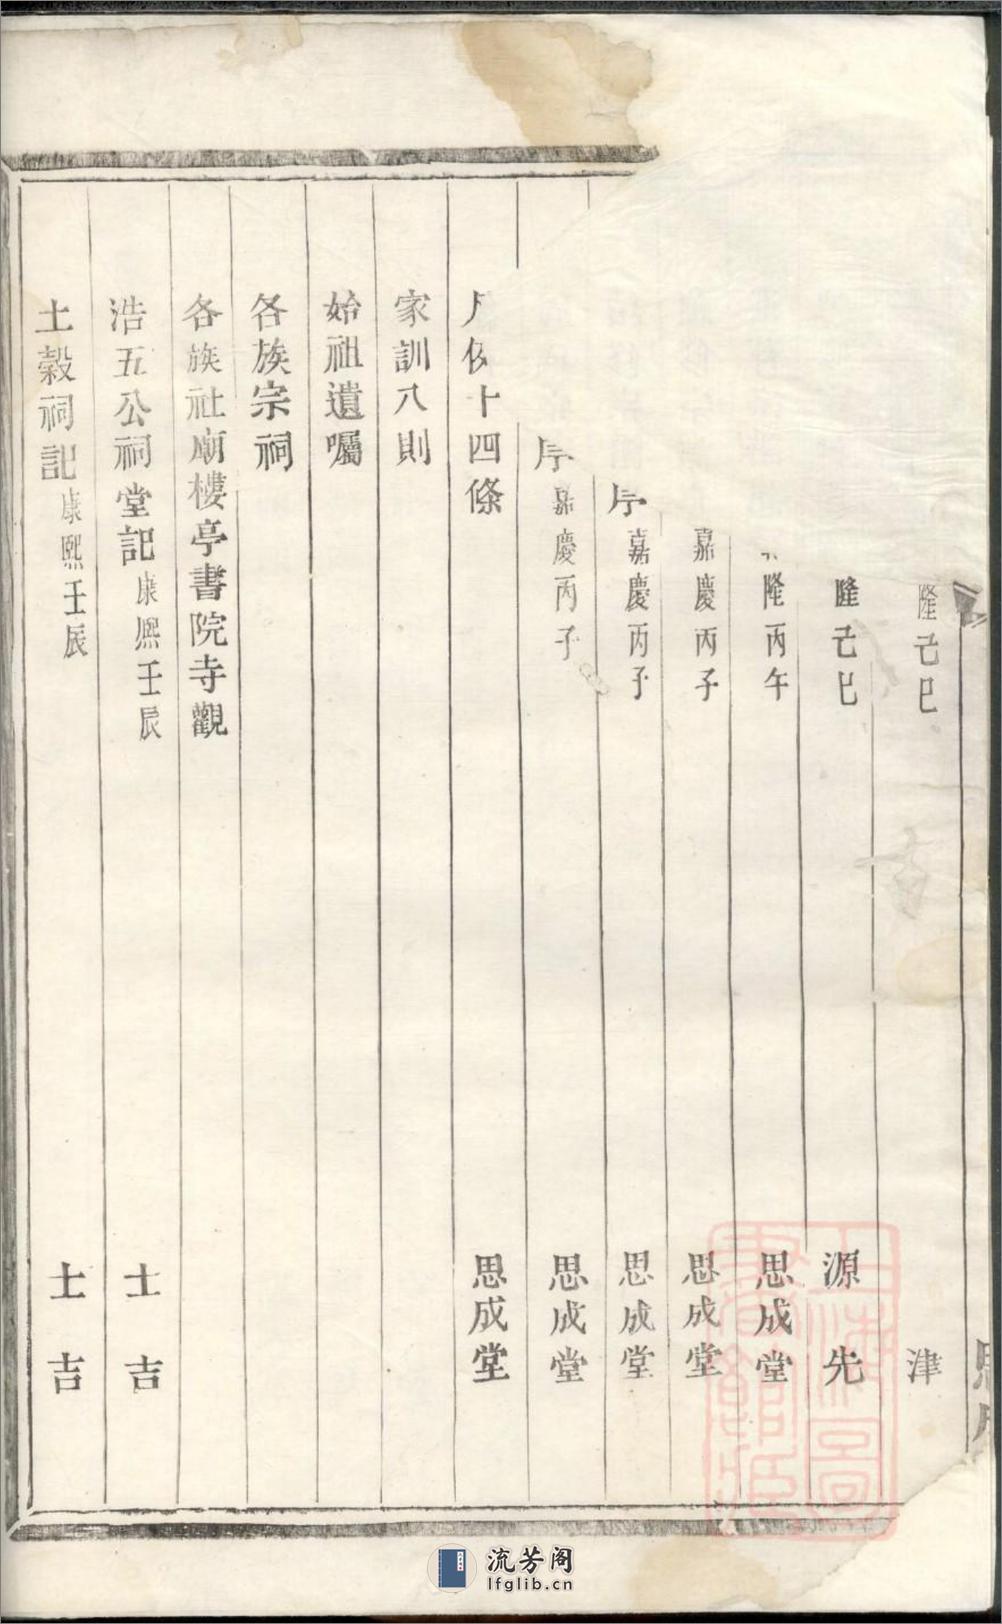 隆己巳 津
隆己巳 源先
隆丙午 思成堂
嘉慶丙子 思成堂
序 嘉慶丙子 思成堂
序 嘉慶丙子 思成堂
凡例十四條 思成堂
家訓八則
始祖遺囑
各族宗祠
各族社廟樓亭書院寺觀
浩五公祠堂記 康熙壬辰 士吉
土穀祠記 康熙壬辰 士吉
上海圖書館藏
流芳阁
lfglib.cn